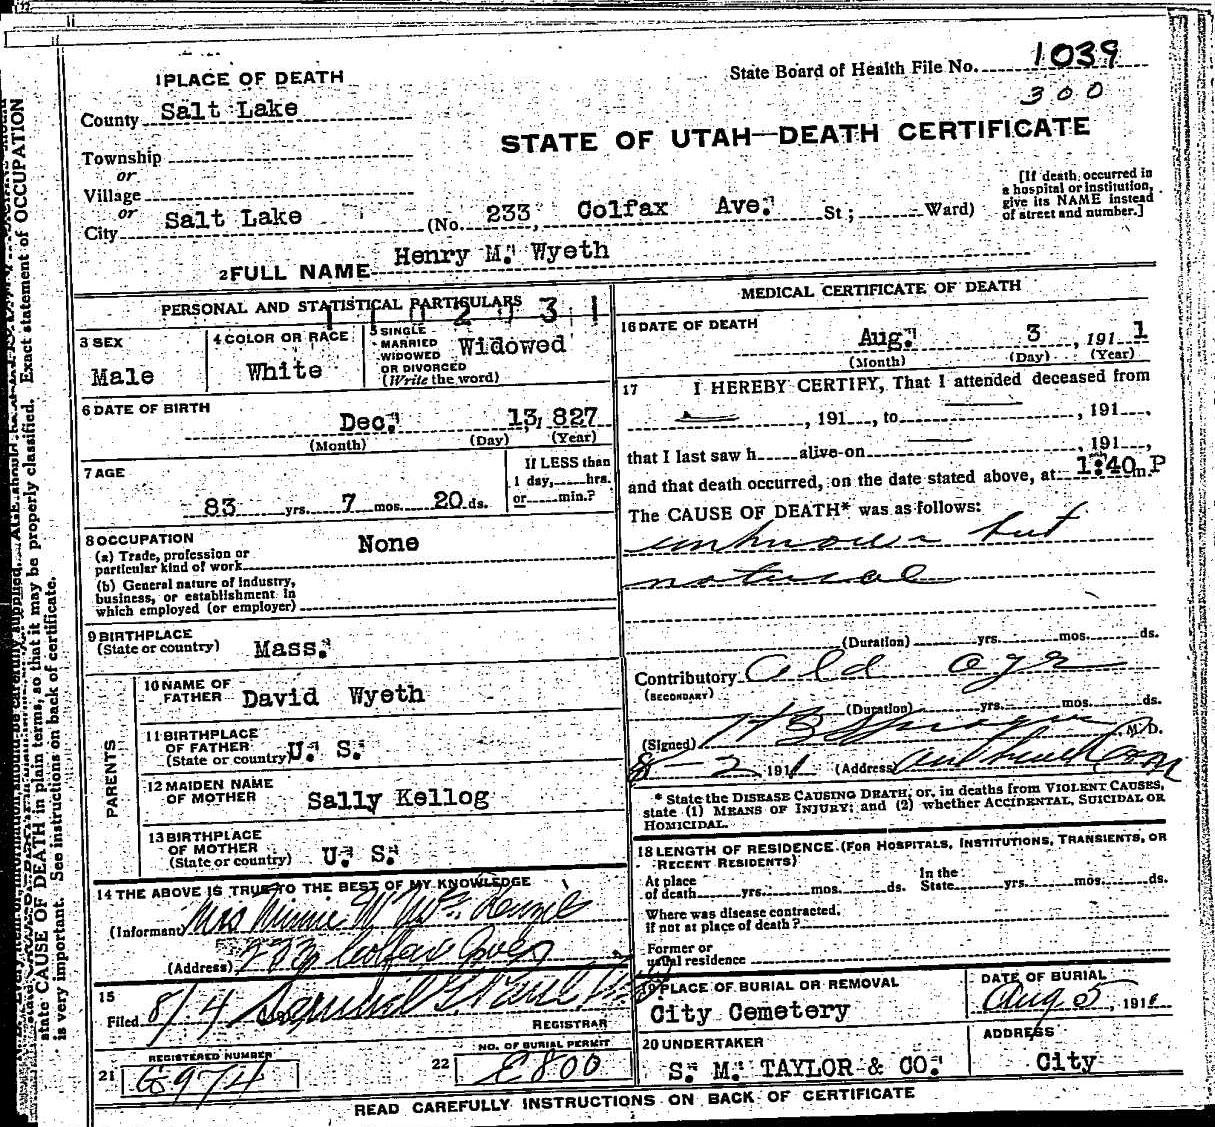 1 PLACE OF DEATH
State Board of Health File No. 1039
300
County Salt Lake
STATE OF UTAH—DEATH CERTIFICATE
Township
or
Village
or
City Salt Lake (No. 233, Colfax Ave. St; Ward)
[If death occurred in
a hospital or institution,
give its NAME instead
of street and number.]
2 FULL NAME Henry M. Wyeth
PERSONAL AND STATISTICAL PARTICULARS
3 SEX
Male
4 COLOR OR RACE
White
5 SINGLE
MARRIED
WIDOWED
OR DIVORCED
(Write the word)
Widowed
6 DATE OF BIRTH
Dec. 13, 827
(Month) (Day) (Year)
7 AGE
83 yrs. 7 mos. 20 ds.
If LESS than
1 day, hrs.
or min.?
8 OCCUPATION
(a) Trade, profession or
particular kind of work None
(b) General nature of industry,
business, or establishment in
which employed (or employer)
9 BIRTHPLACE
(State or country) Mass.
PARENTS
10 NAME OF
FATHER David Wyeth
11 BIRTHPLACE
OF FATHER
(State or country) U. S.
12 MAIDEN NAME
OF MOTHER Sally Kellog
13 BIRTHPLACE
OF MOTHER
(State or country) U. S.
14 THE ABOVE IS TRUE TO THE BEST OF MY KNOWLEDGE
(Informant) Mrs Minnie W
(Address) 233 Colfax
15
Filed 8/4
REGISTRAR
REGISTERED NUMBER
21 G974
NO. OF BURIAL PERMIT
22 E800
MEDICAL CERTIFICATE OF DEATH
16 DATE OF DEATH
Aug. 3, 1911
(Month) (Day) (Year)
17 I HEREBY CERTIFY, That I attended deceased from
, 191 , to , 191 ,
that I last saw h alive on , 191 ,
and that death occurred, on the date stated above, at 1:40 m. P
The CAUSE OF DEATH* was as follows:
unknown but
natural
(Duration) yrs. mos. ds.
Contributory Old age
(SECONDARY)
(Duration) yrs. mos. ds.
(Signed) H B Sprague M.D.
8 2 1911 (Address)
* State the DISEASE CAUSING DEATH, or, in deaths from VIOLENT CAUSES,
state (1) MEANS OF INJURY; and (2) whether ACCIDENTAL, SUICIDAL OR
HOMICIDAL.
18 LENGTH OF RESIDENCE (FOR HOSPITALS, INSTITUTIONS, TRANSIENTS, OR
RECENT RESIDENTS)
At place
of death yrs. mos. ds.
In the
State yrs. mos. ds.
Where was disease contracted,
if not at place of death?
Former or
usual residence
19 PLACE OF BURIAL OR REMOVAL
City Cemetery
DATE OF BURIAL
Aug 5, 1911
20 UNDERTAKER
S. M. TAYLOR & CO.
ADDRESS
City
READ CAREFULLY INSTRUCTIONS ON BACK OF CERTIFICATE
AGE should
properly classified. Exact statement of OCCUPATION
state CAUSE OF DEATH in plain terms, so that it may be
is very important. See instructions on back of certificate.